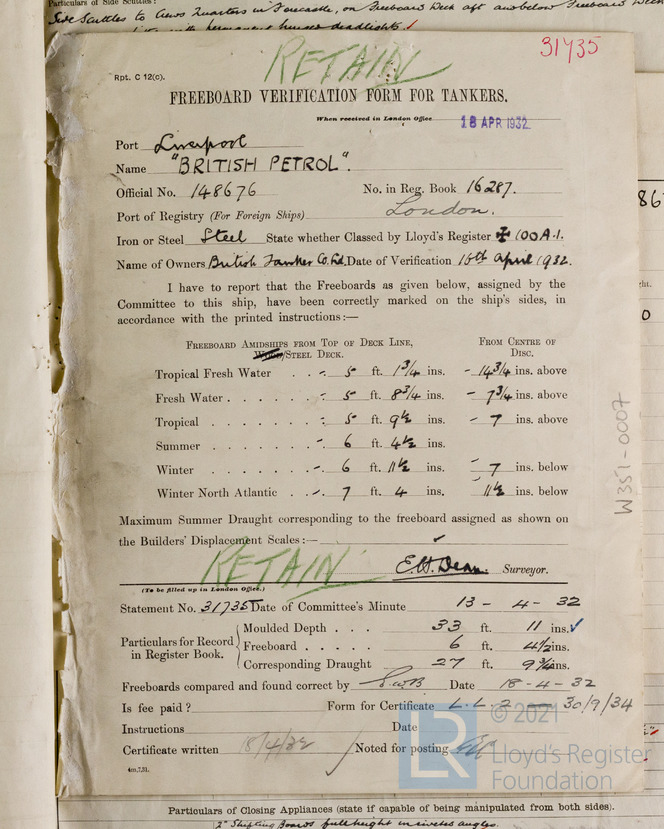 Particulars of Side Scuttles :
Side Scuttles to Crews Quarters in Forecastle, on Freeboard Deck aft and below Freeboard Deck
with permanent hinged deadlights.
RETAIN
31735
Rpt. C 12(c).
FREEBOARD VERIFICATION FORM FOR TANKERS.
When received in London Office 18 APR 1932
Port Liverpool
Name "BRITISH PETROL".
Official No. 148676 No. in Reg. Book 16287.
Port of Registry (For Foreign Ships) London.
Iron or Steel Steel State whether Classed by Lloyd's Register ✠ 100 A.1.
Name of Owners British Tanker Co. Ltd. Date of Verification 16th April 1932.
I have to report that the Freeboards as given below, assigned by the
Committee to this ship, have been correctly marked on the ship's sides, in
accordance with the printed instructions :—
FREEBOARD AMIDSHIPS FROM TOP OF DECK LINE, FROM CENTRE OF
WOOD/STEEL DECK. DISC.
Tropical Fresh Water . . - 5 ft. 1 3/4 ins. - 14 3/4 ins. above
Fresh Water . . . . . . - 5 ft. 8 3/4 ins. - 7 3/4 ins. above
Tropical . . . . . . . - 5 ft. 9 1/2 ins. - 7 ins. above
Summer . . . . . . . - 6 ft. 4 1/2 ins.
Winter . . . . . . . - 6 ft. 11 1/2 ins. - 7 ins. below
Winter North Atlantic . . - 7 ft. 4 ins. 11 1/2 ins. below
Maximum Summer Draught corresponding to the freeboard assigned as shown on
the Builders' Displacement Scales :—
RETAIN
E.H. Dean. Surveyor.
(To be filled up in London Office.)
Statement No. 31735T Date of Committee's Minute 13 - 4 - 32
Particulars for Record in Register Book.
Moulded Depth . . . 33 ft. 11 ins.
Freeboard . . . . . 6 ft. 4 1/2 ins.
Corresponding Draught 27 ft. 9 3/4 ins.
Freeboards compared and found correct by S.W.B Date 18-4-32
Is fee paid ? Form for Certificate L.L.3 — 30/9/34
Instructions Date
Certificate written 18/4/32 Noted for posting
4m,7,31.
W351-0007
© 2021
LR
Lloyd's Register
Foundation
Particulars of Closing Appliances (state if capable of being manipulated from both sides).
2" Shifting Boards full height in riveted angles.